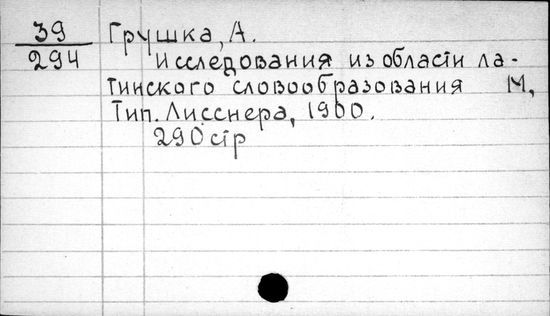 39
294
Грушка, А.
Исследования из области ла-
тинского словообразования М,
Тип. Лисснера, 1900.
290 стр